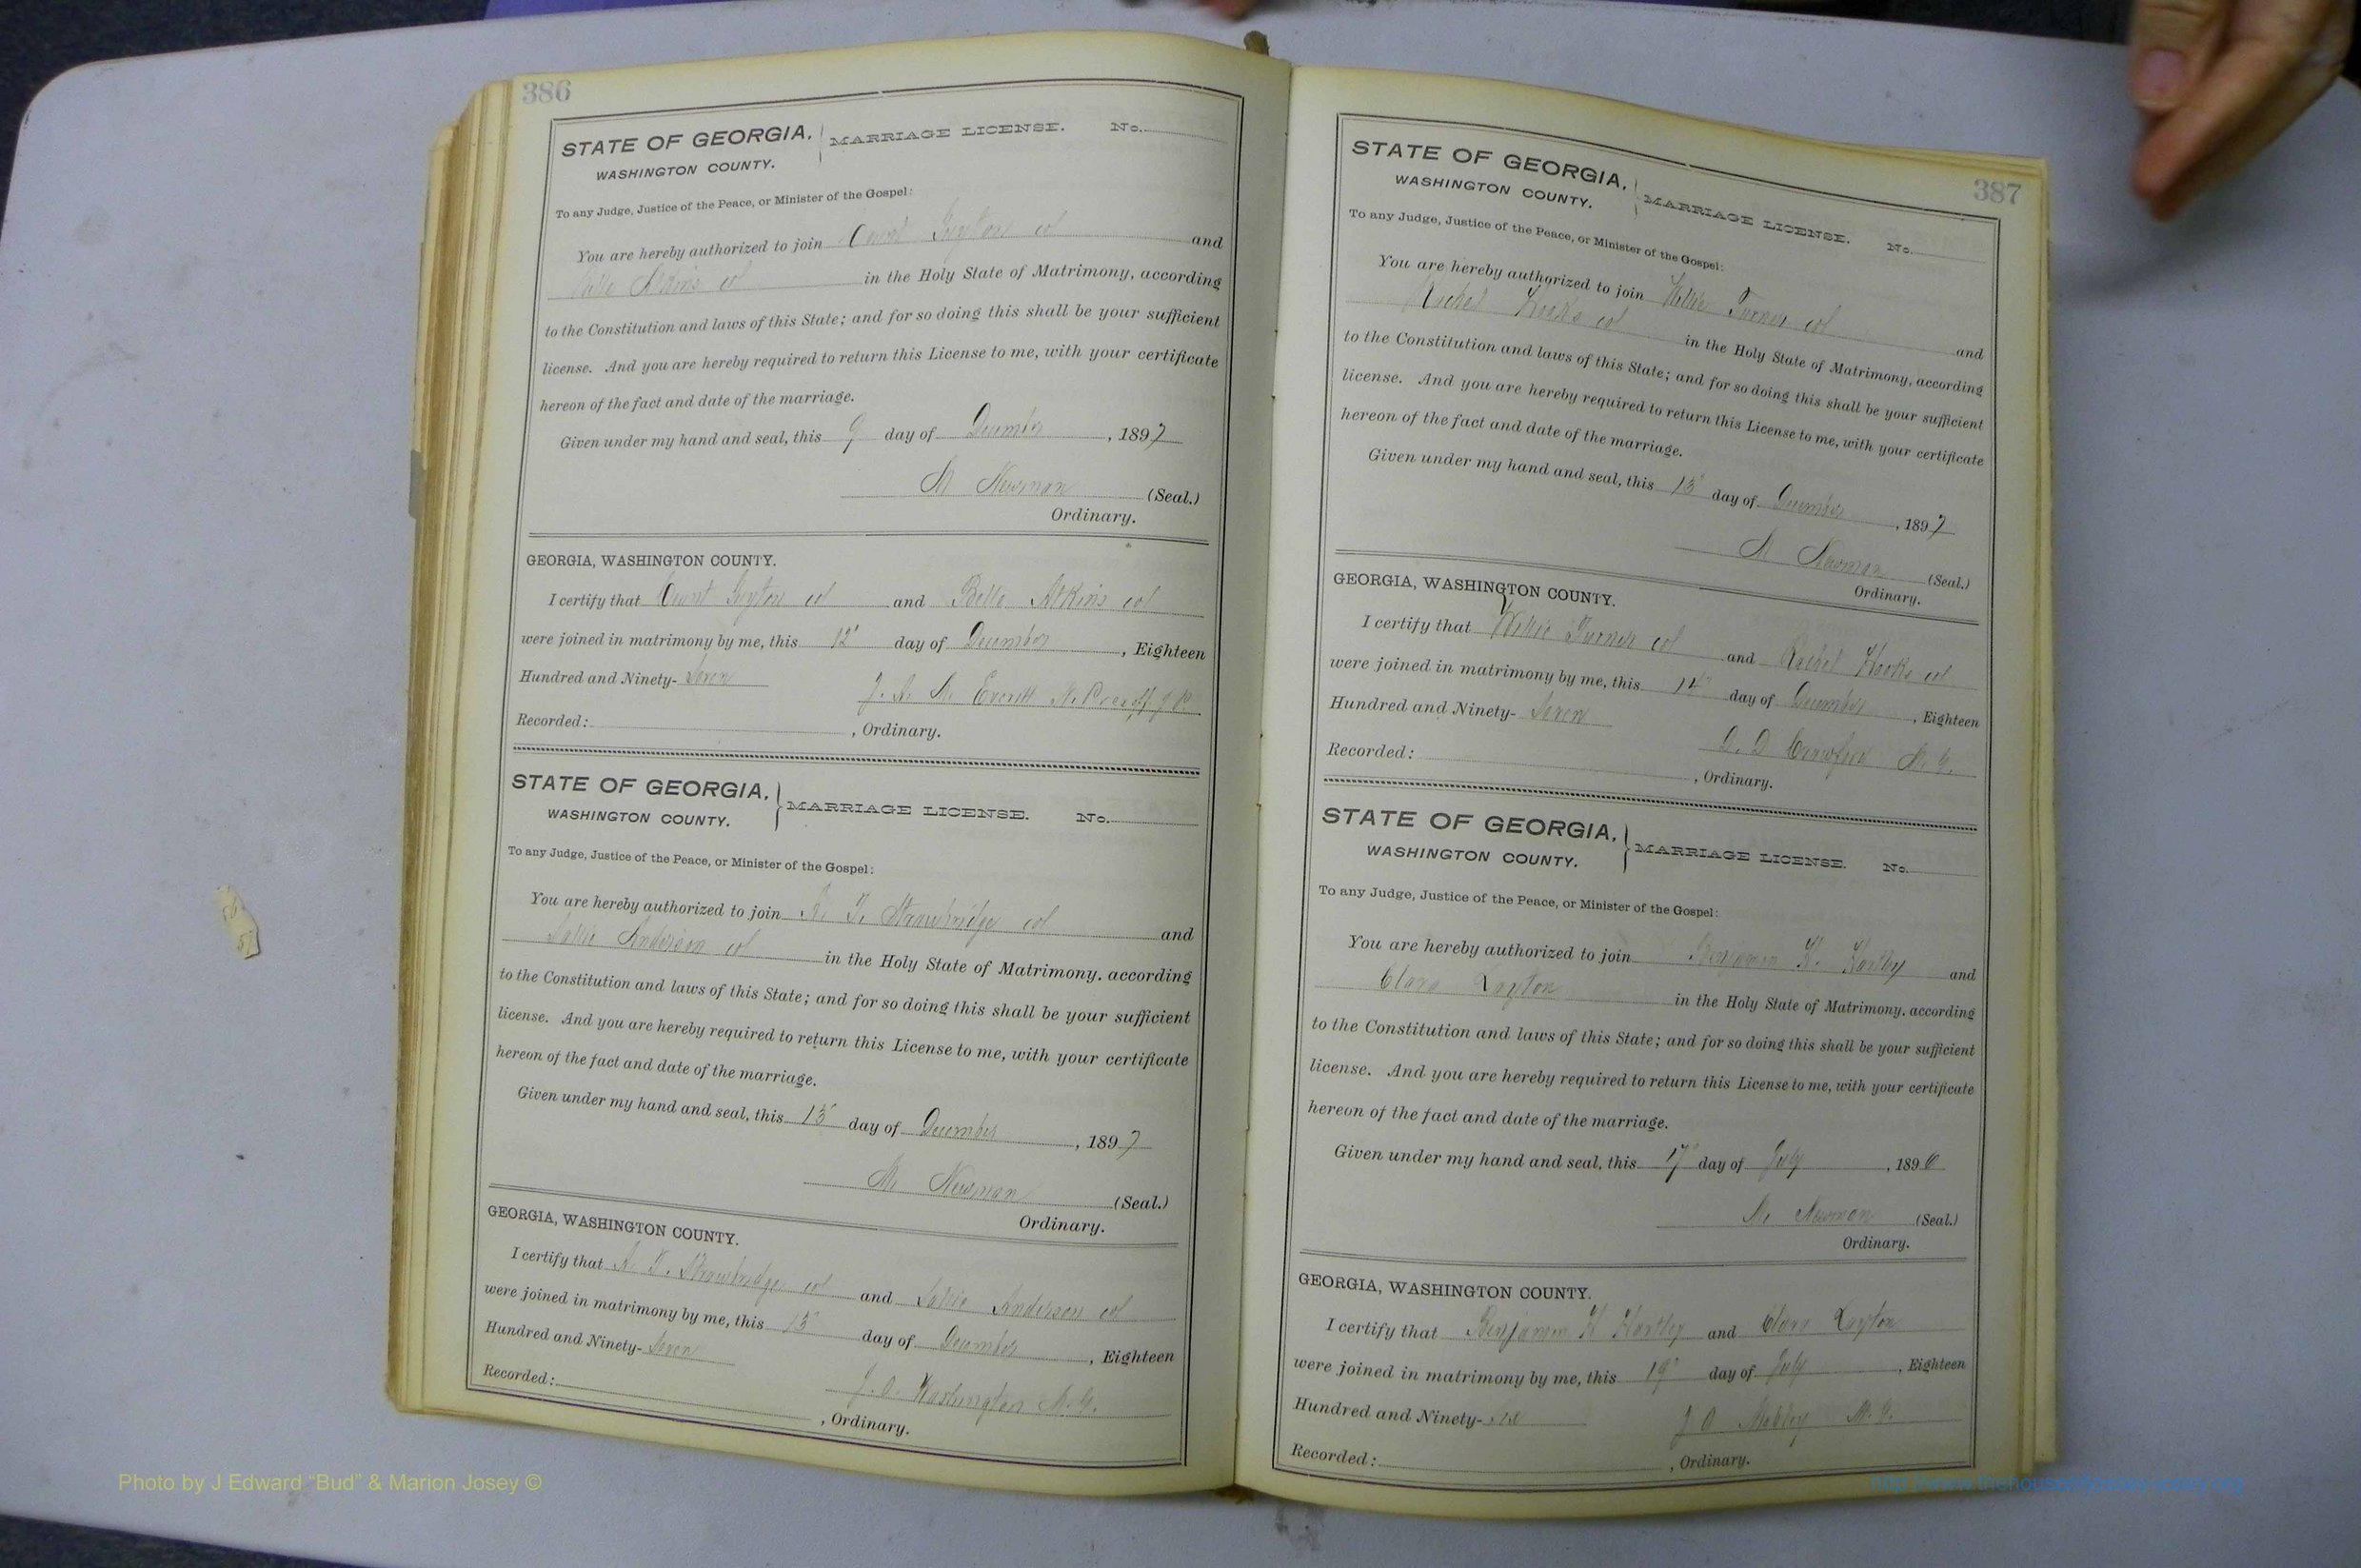 386
STATE OF GEORGIA,
WASHINGTON COUNTY.
MARRIAGE LICENSE. No.
To any Judge, Justice of the Peace, or Minister of the Gospel:
You are hereby authorized to join col and
Belle Atkins col in the Holy State of Matrimony, according
to the Constitution and laws of this State; and for so doing this shall be your sufficient
license. And you are hereby required to return this License to me, with your certificate
hereon of the fact and date of the marriage.
Given under my hand and seal, this 9 day of December, 1897
M Newman (Seal.)
Ordinary.
GEORGIA, WASHINGTON COUNTY.
I certify that col and Belle Atkins col
were joined in matrimony by me, this 12" day of December, Eighteen
Hundred and Ninety- Seven J. A. M. Everitt
Recorded: , Ordinary.
STATE OF GEORGIA,
WASHINGTON COUNTY.
MARRIAGE LICENSE. No.
To any Judge, Justice of the Peace, or Minister of the Gospel:
You are hereby authorized to join T. Strawbridge col and
Sallie Anderson col in the Holy State of Matrimony. according
to the Constitution and laws of this State; and for so doing this shall be your sufficient
license. And you are hereby required to return this License to me, with your certificate
hereon of the fact and date of the marriage.
Given under my hand and seal, this 13" day of December, 1897
M. Newman (Seal.)
Ordinary.
GEORGIA, WASHINGTON COUNTY.
I certify that Strawbridge col and Sallie Anderson col
were joined in matrimony by me, this 13" day of December, Eighteen
Hundred and Ninety- Seven J. O. Washington M.G.
Recorded: , Ordinary.
387
STATE OF GEORGIA,
WASHINGTON COUNTY.
MARRIAGE LICENSE. No.
To any Judge, Justice of the Peace, or Minister of the Gospel:
You are hereby authorized to join Willie Turner col and
Rachel Hooks col in the Holy State of Matrimony, according
to the Constitution and laws of this State; and for so doing this shall be your sufficient
license. And you are hereby required to return this License to me, with your certificate
hereon of the fact and date of the marriage.
Given under my hand and seal, this 13" day of December, 1897
M Newman (Seal.)
Ordinary.
GEORGIA, WASHINGTON COUNTY.
I certify that Willie Turner col and Rachel Hooks col
were joined in matrimony by me, this 14" day of December, Eighteen
Hundred and Ninety- Seven D. D Crawford M.G.
Recorded: , Ordinary.
STATE OF GEORGIA,
WASHINGTON COUNTY.
MARRIAGE LICENSE. No.
To any Judge, Justice of the Peace, or Minister of the Gospel:
You are hereby authorized to join Benjamin K. Hartley and
Clara Layton in the Holy State of Matrimony. according
to the Constitution and laws of this State; and for so doing this shall be your sufficient
license. And you are hereby required to return this License to me, with your certificate
hereon of the fact and date of the marriage.
Given under my hand and seal, this 17" day of July, 1896
M. Newman (Seal.)
Ordinary.
GEORGIA, WASHINGTON COUNTY.
I certify that Benjamin K Hartley and Clara Layton
were joined in matrimony by me, this 19" day of July, Eighteen
Hundred and Ninety- six J O Mobley M.G.
Recorded: , Ordinary.
Photo by J Edward “Bud” & Marion Josey ©